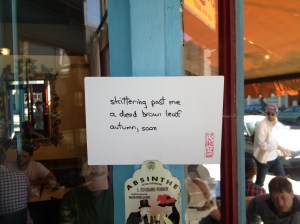 skittering past me
a dead brown leaf
autumn, soon
ABSINTHE